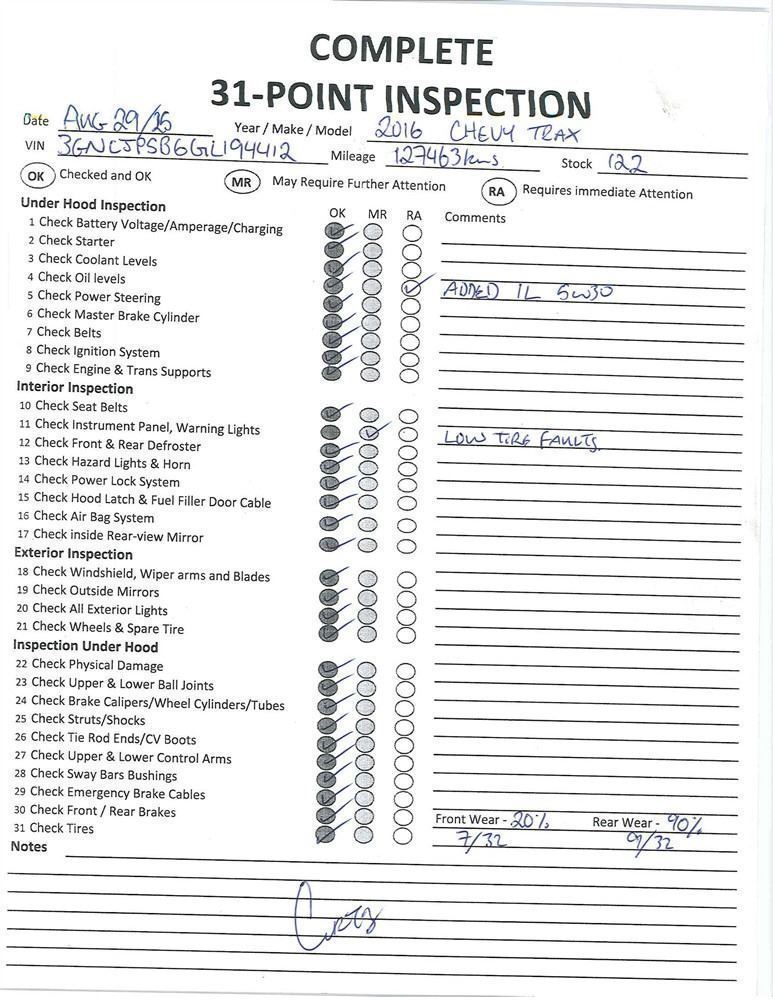 COMPLETE
31-POINT INSPECTION
Date AUG 29/25 Year / Make / Model 2016 CHEVY TRAX
VIN 3GNCJPSB6GL194412 Mileage 127463 kms Stock 122
OK Checked and OK MR May Require Further Attention RA Requires immediate Attention
Under Hood Inspection OK MR RA Comments
1 Check Battery Voltage/Amperage/Charging
2 Check Starter
3 Check Coolant Levels
4 Check Oil levels ADDED 1L 5w30
5 Check Power Steering
6 Check Master Brake Cylinder
7 Check Belts
8 Check Ignition System
9 Check Engine & Trans Supports
Interior Inspection
10 Check Seat Belts
11 Check Instrument Panel, Warning Lights LOW TIRE FAULTS.
12 Check Front & Rear Defroster
13 Check Hazard Lights & Horn
14 Check Power Lock System
15 Check Hood Latch & Fuel Filler Door Cable
16 Check Air Bag System
17 Check inside Rear-view Mirror
Exterior Inspection
18 Check Windshield, Wiper arms and Blades
19 Check Outside Mirrors
20 Check All Exterior Lights
21 Check Wheels & Spare Tire
Inspection Under Hood
22 Check Physical Damage
23 Check Upper & Lower Ball Joints
24 Check Brake Calipers/Wheel Cylinders/Tubes
25 Check Struts/Shocks
26 Check Tie Rod Ends/CV Boots
27 Check Upper & Lower Control Arms
28 Check Sway Bars Bushings
29 Check Emergency Brake Cables
30 Check Front / Rear Brakes Front Wear - 20% Rear Wear - 90%
31 Check Tires 7/32 9/32
Notes